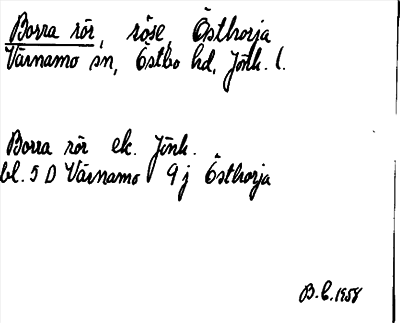 Borra rör, röse, Östhorja
Värnamo sn, Östbo hd, Jönk. l.
Borra rör ek. Jönk.
bl. 5 D Värnamo 9 j Östhorja
B. C. 1958